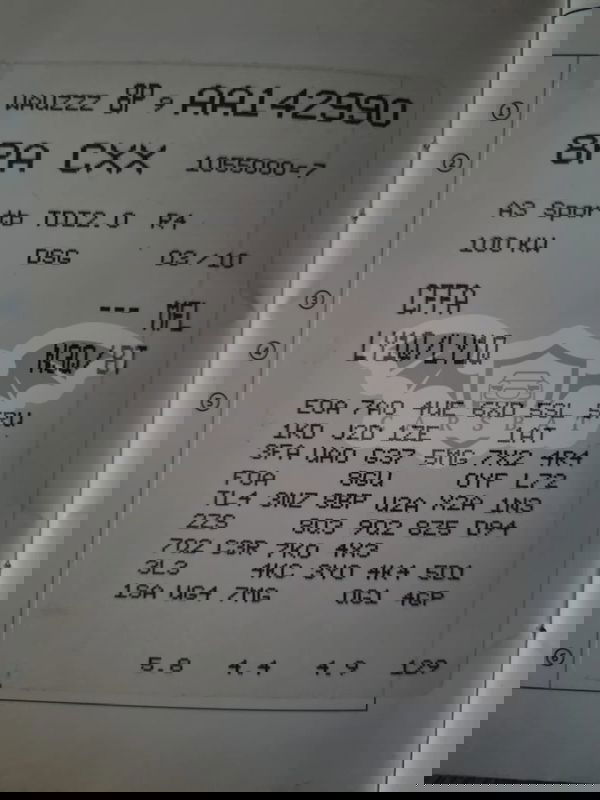 WAUZZZ 8P 9 AA142990
①
8PA CXX 1055000-7
②
A3 Sportb TDI2.0 R4
100KW DSG 03/10
③ CFFA --- MFL
④ LY9B/LY9B N3Q/BT
⑤ E0A 7A0 4UE 6XD 5SL 5RU
1KD J2D 1ZE 1AT
3FA UA0 G37 5MG 7X2 4R4
F0A 8GU 0YF L72
TL4 3NZ 8BP U2A X2A 1NS
2ZS 8Q3 9Q2 8Z5 D94
7Q2 C3R 7K0 4X3
3L3 4KC 3Y0 4K4 5D1
1SA UG4 7MG QG1 4GP
⑥ 5.8 4.4 4.9 129
CARSBAT